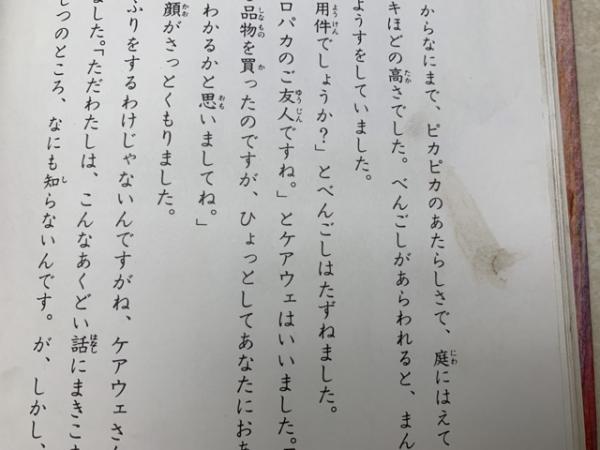 からなにまで、ピカピカのあたらしさで、庭にはえて
キほどの高さでした。べんごしがあらわれると、まん
ようすをしていました。
用件でしょうか?」とべんごしはたずねました。
ロパカのご友人ですね。」とケアウェはいいました。「
品物を買ったのですが、ひょっとしてあなたにおち
わかるかと思いましてね。」
顔がさっとくもりました。
ぶりをするわけじゃないんですがね、ケアウェさん
ました。「ただわたしは、こんなあくどい話にまきこま
じつのところ、なにも知らないんです。が、しかし、